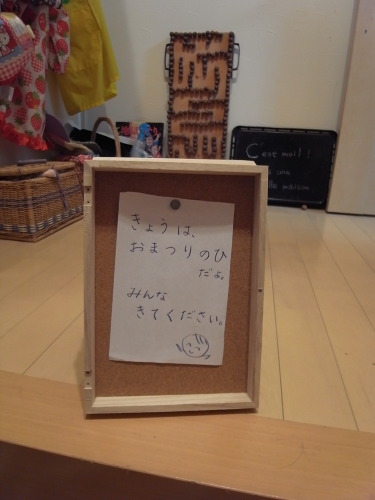 きょうは、
おまつりのひ
だよ。
みんな
きてください。
C'est moi!
une